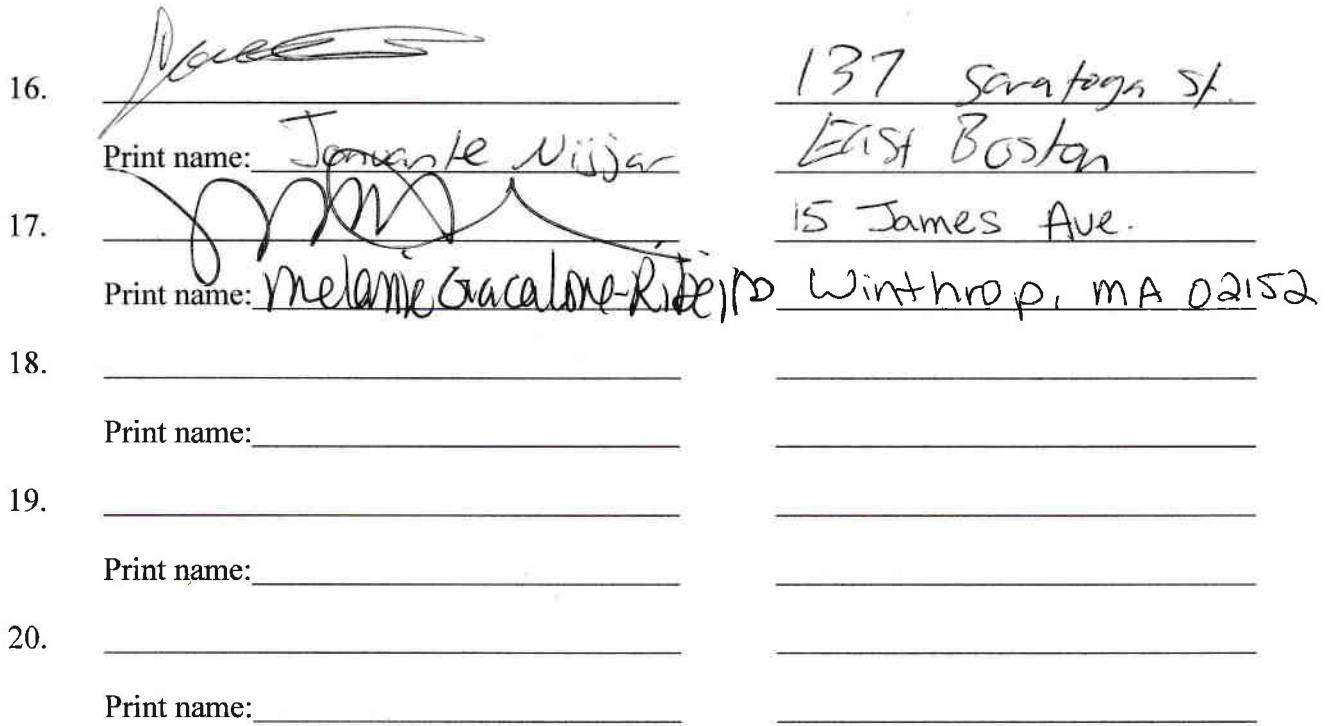 16. 137 Saratoga St.
Print name: Nijjar East Boston
17. 15 James Ave.
Print name: Melanie Giacalone-Ribeiro Winthrop, MA 02152
18.
Print name:
19.
Print name:
20.
Print name: